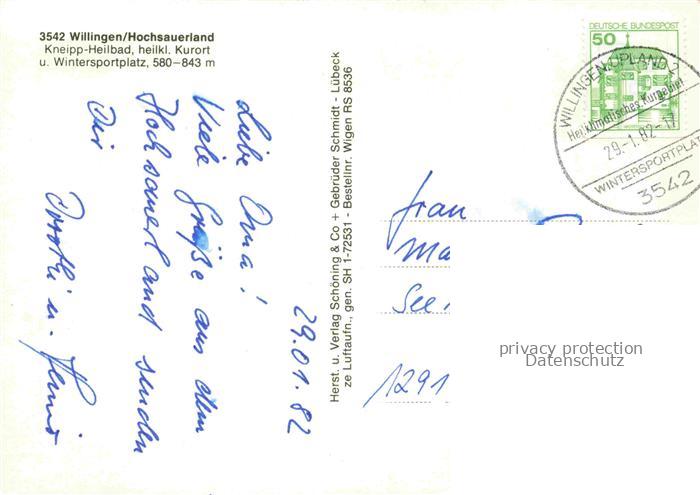 3542 Willingen/Hochsauerland
Kneipp-Heilbad, heilkl. Kurort
u. Wintersportplatz, 580–843 m
Liebe Oma!
Viele Grüße aus dem
Hochsauerland senden
Dir
29.01.82
Herst. u. Verlag Schöning & Co + Gebrüder Schmidt - Lübeck
ze Luftaufn., gen. SH 1-72531 - Bestellnr. Wigen RS 8536
DEUTSCHE BUNDESPOST
50
WILLINGEN, UPLAND 2
Heilklimatisches Kurgebiet
29.-1.82-17
WINTERSPORTPLAT
3542
Frau
Ma
See
1291
privacy protection
Datenschutz